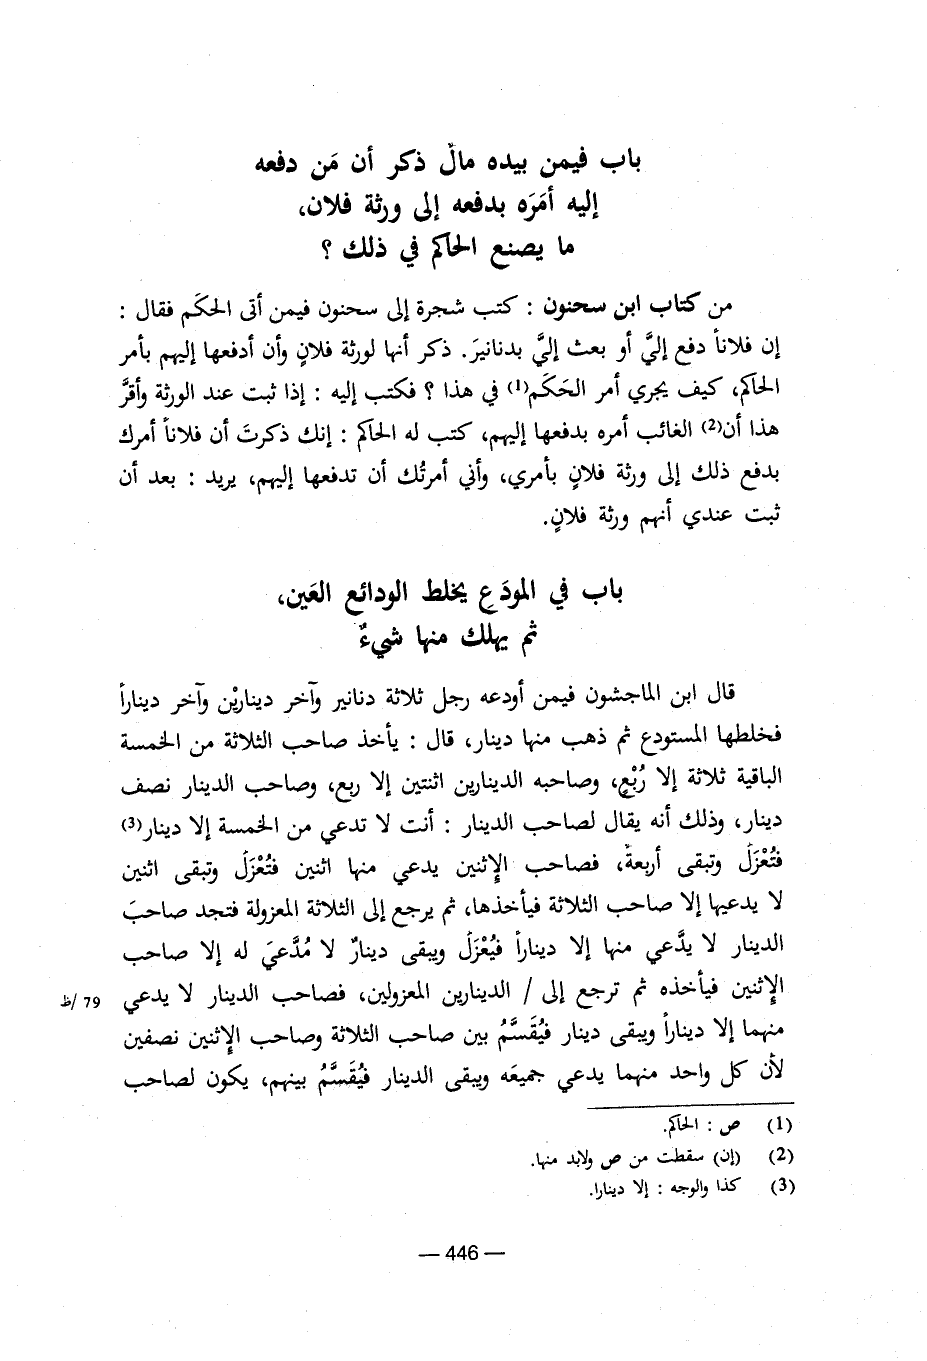 باب فيمن بيده مالٌ ذكر أن مَن دفعه
إليه أمَرَه بدفعه إلى ورثة فلان،
ما يصنع الحاكم في ذلك ؟
من كتاب ابن سحنون : كتب شجرة إلى سحنون فيمن أتى الحكَم فقال :
إن فلاناً دفع إليَّ أو بعث إليَّ بدنانيرَ. ذكر أنها لورثة فلانٍ وأن أدفعها إليهم بأمر
الحاكم، كيف يجري أمر الحَكَم(1) في هذا ؟ فكتب إليه : إذا ثبت عند الورثة وأقرَّ
هذا أن(2) الغائب أمره بدفعها إليهم، كتب له الحاكم : إنك ذكرتَ أن فلاناً أمرك
بدفع ذلك إلى ورثة فلانٍ بأمري، وأني أمرتُك أن تدفعها إليهم، يريد : بعد أن
ثبت عندي أنهم ورثة فلانٍ.
باب في المودَع يخلط الودائع العَين،
ثم يهلك منها شيءٌ
قال ابن الماجشون فيمن أودعه رجل ثلاثة دنانير وآخر دينارَيْن وآخر ديناراً
فخلطها المستودع ثم ذهب منها دينار، قال : يأخذ صاحب الثلاثة من الخمسة
الباقية ثلاثة إلا رُبْعٍ، وصاحبه الدينارين اثنتين إلا ربع، وصاحب الدينار نصف
دينار، وذلك أنه يقال لصاحب الدينار : أنت لا تدعي من الخمسة إلا دينار(3)
فتُعْزَلُ وتبقى أربعةٌ، فصاحب الإثنين يدعي منها اثنين فتُعْزَلُ وتبقى اثنين
لا يدعيها إلا صاحب الثلاثة فيأخذها، ثم يرجع إلى الثلاثة المعزولة فتجد صاحبَ
الدينار لا يدَّعي منها إلا ديناراً فيُعْزَلُ ويبقى دينارٌ لا مُدَّعيَ له إلا صاحب
الإثنين فيأخذه ثم ترجع إلى / الدينارين المعزولين، فصاحب الدينار لا يدعي 79 /ظ
منهما إلا ديناراً ويبقى دينار فيُقَسَّمُ بين صاحب الثلاثة وصاحب الإثنين نصفين
لأن كل واحد منهما يدعي جميعَه ويبقى الدينار فيُقَسَّمُ بينهم، يكون لصاحب
(1) ص : الحاكم.
(2) (إن) سقطت من ص ولابد منها.
(3) كذا والوجه : إلا دينارا.
— 446 —